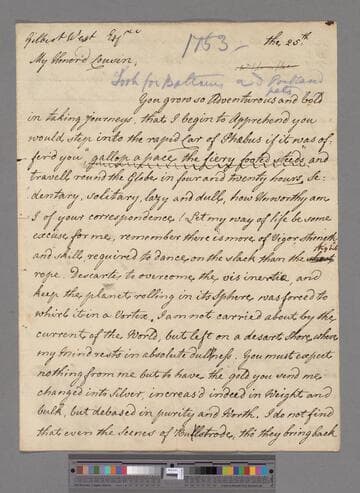 Gilbert West Esqre
1753 –
the 25th
My Honor'd Cousin,
Look for Balteus and Portland
You grow so Adventurous and bold
in taking Journeys, that I begin to Apprehend you
would step into the rapid Car of Phœbus if it was of,
fer'd you "gallop a pace the fiery footed steeds" and
travell round the Globe in four and twenty hours, Se-
dentary, solitary, lazy and dull, how Unworthy am
I of your correspondence! Let my way of life be some
excuse for me, remember there is more of Vigor strength
and skill required to dance on the slack than the tight
rope. Descartes to overcome the vis inertiæ, and
keep the planet rolling in its Sphere was forced to
whirl it in a Vortex, I am not carried about by the
current of the World, but left on a desart Shore, where
my mind rests in absolute dullness. You must expect
nothing from me but to have the gold you send me
changed into Silver, increas'd indeed in Weight and
bulk, but debased in purity and Worth. I do not find
that even the Scenes of Bullstrode, tho they bring back